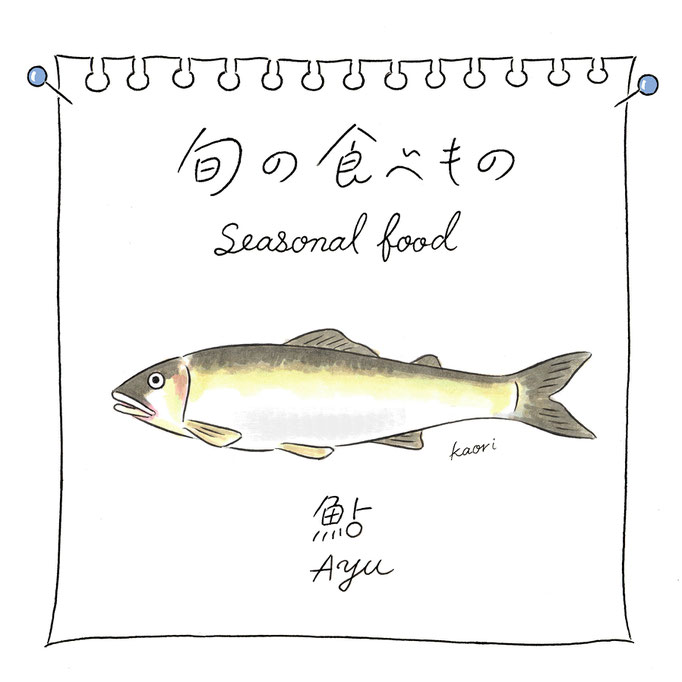 旬の食べもの
Seasonal food
kaori
鮎
Ayu